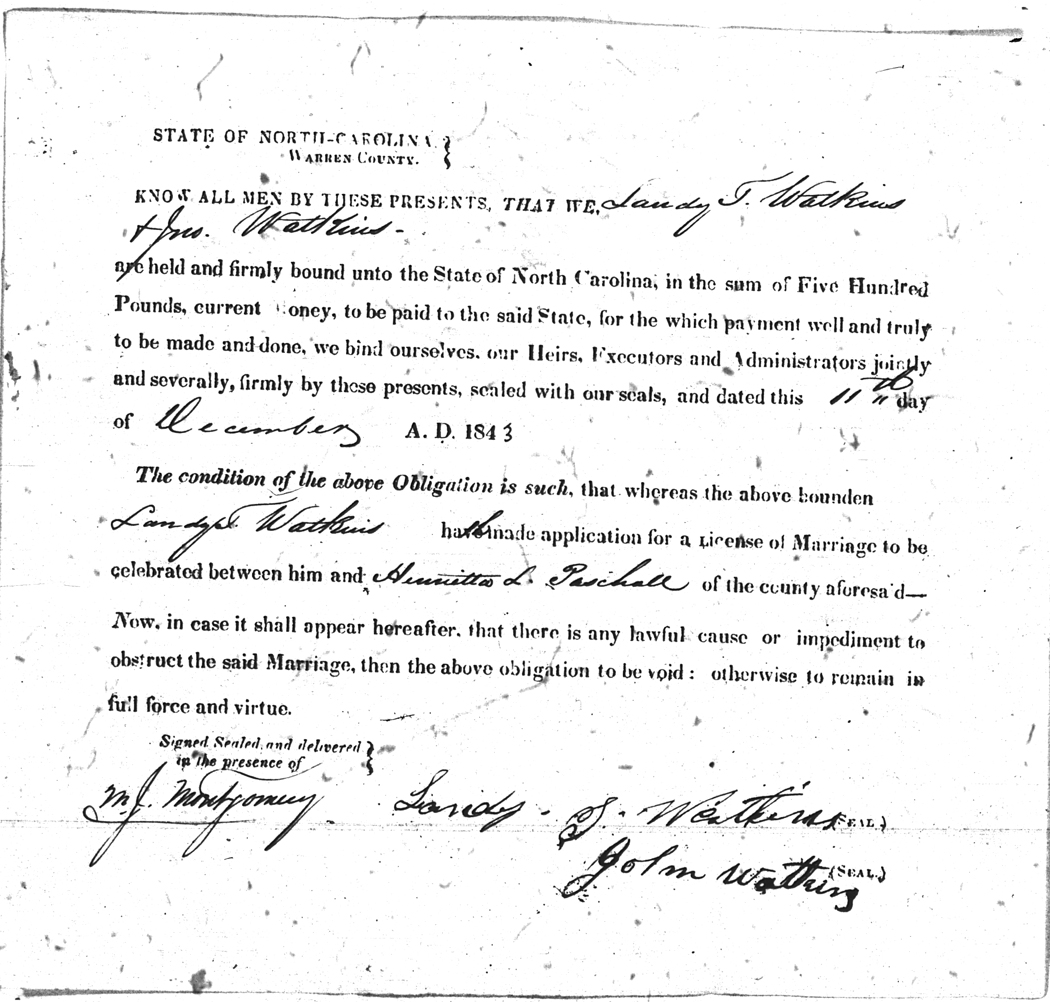 STATE OF NORTH-CAROLINA,
WARREN COUNTY.
KNOW ALL MEN BY THESE PRESENTS, THAT WE, Landy T. Watkins
& Jno. Watkins -
are held and firmly bound unto the State of North Carolina, in the sum of Five Hundred
Pounds, current money, to be paid to the said State, for the which payment well and truly
to be made and done, we bind ourselves, our Heirs, Executors and Administrators jointly
and severally, firmly by these presents, sealed with our seals, and dated this 11th day
of December A. D. 1843
The condition of the above Obligation is such, that whereas the above bounden
Landy T. Watkins hath made application for a License of Marriage to be
celebrated between him and Henrietta L. Paschall of the county aforesa'd—
Now, in case it shall appear hereafter, that there is any lawful cause or impediment to
obstruct the said Marriage, then the above obligation to be void: otherwise to remain in
full force and virtue.
Signed Sealed, and delivered
in the presence of
M. J. Montgomery Landy . T. Watkins (SEAL.)
John Watkins (SEAL.)